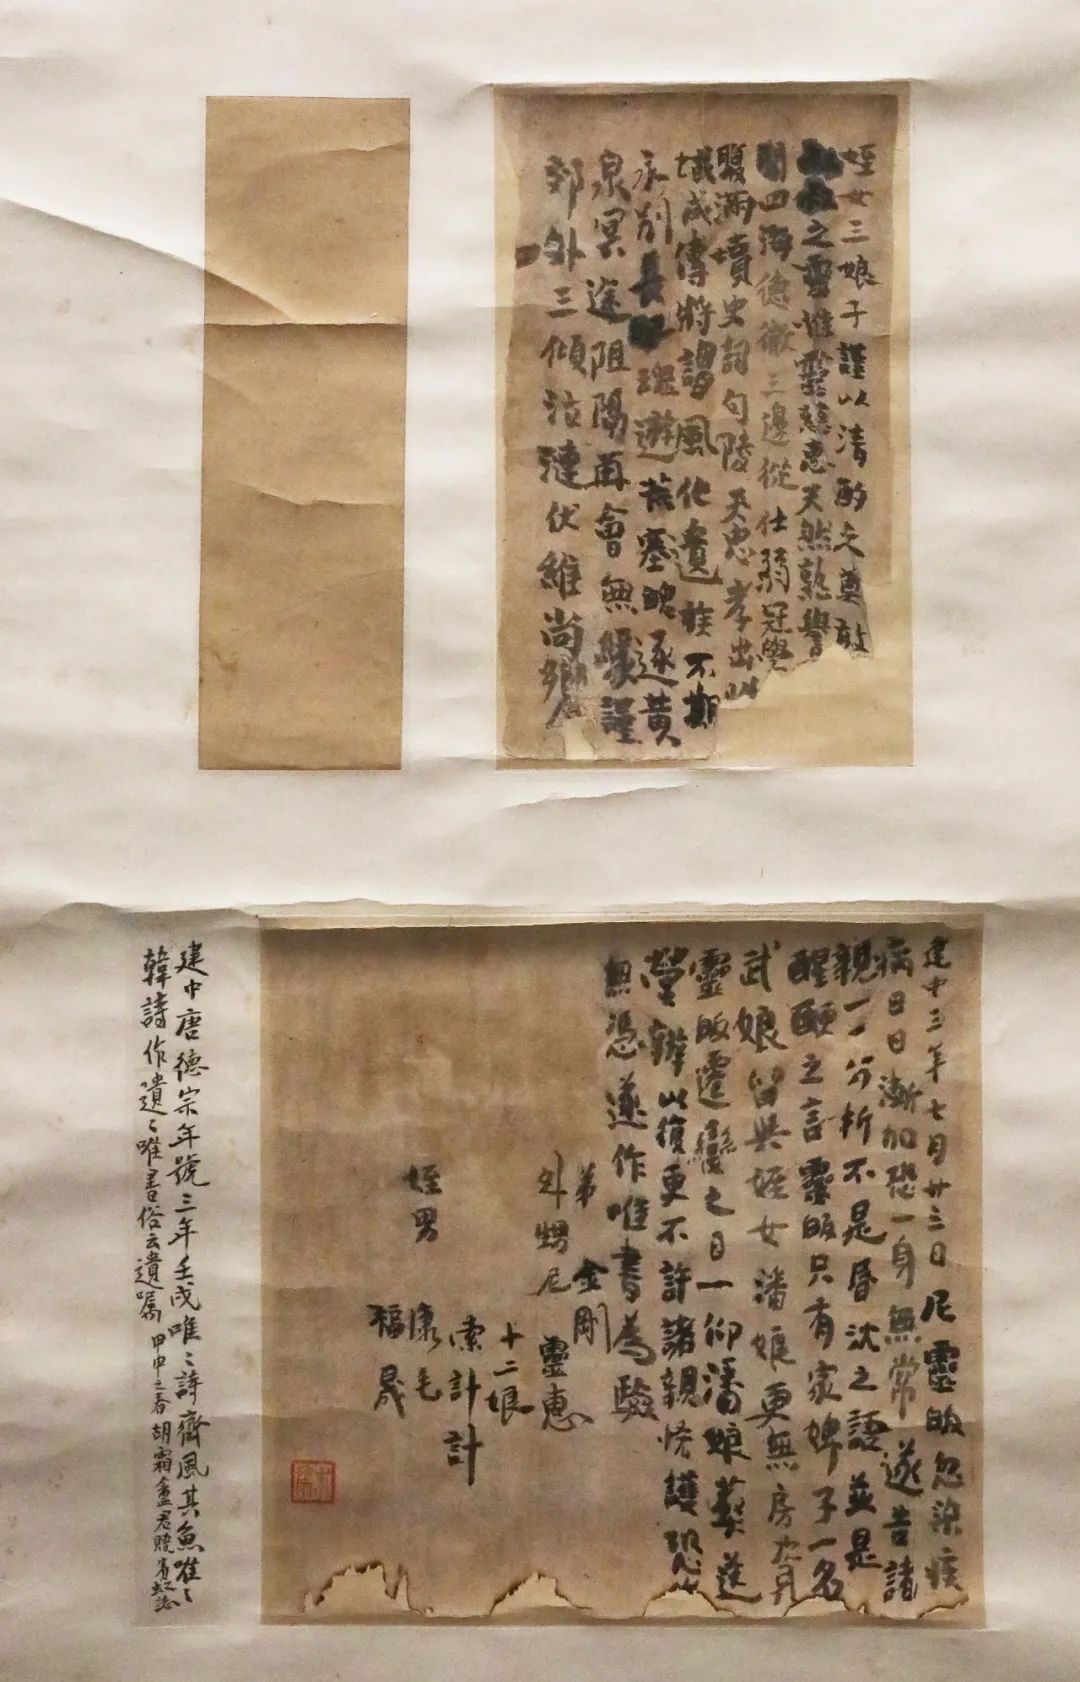 姪女三娘子謹以清酌之奠敢
之靈惟靈慈惠天然孰譽
四海德徹三邊從仕弱冠學
腹滿墳史詞句陵天忠孝出
域咸傳將謂風化遺族不期
永別長 瑰遊荒塞魄逐黃
泉冥途阻隔再會無緣謹
郊外三傾泣漣伏維尚饗
建中三年七月廿三日尼靈皈忽染疾
病日日漸加恐一身無常遂告諸
親一一分析不是昏沈之語並是
醒甦之言靈皈只有家婢子一名
武娘留與姪女潘娘更無房資
靈皈遷變之日一仰潘娘葬送
營辦以後更不許諸親悋護恐
無憑遂作唯書為驗
弟 金剛
外甥尼 靈惠
十二娘
索計計
姪男 康毛
福晟
建中唐德宗年號三年壬戌唯唯詩齊風其魚唯唯
韓詩作遺遺唯書俗云遺囑 甲申之春胡霜盦君贈 賓虹誌